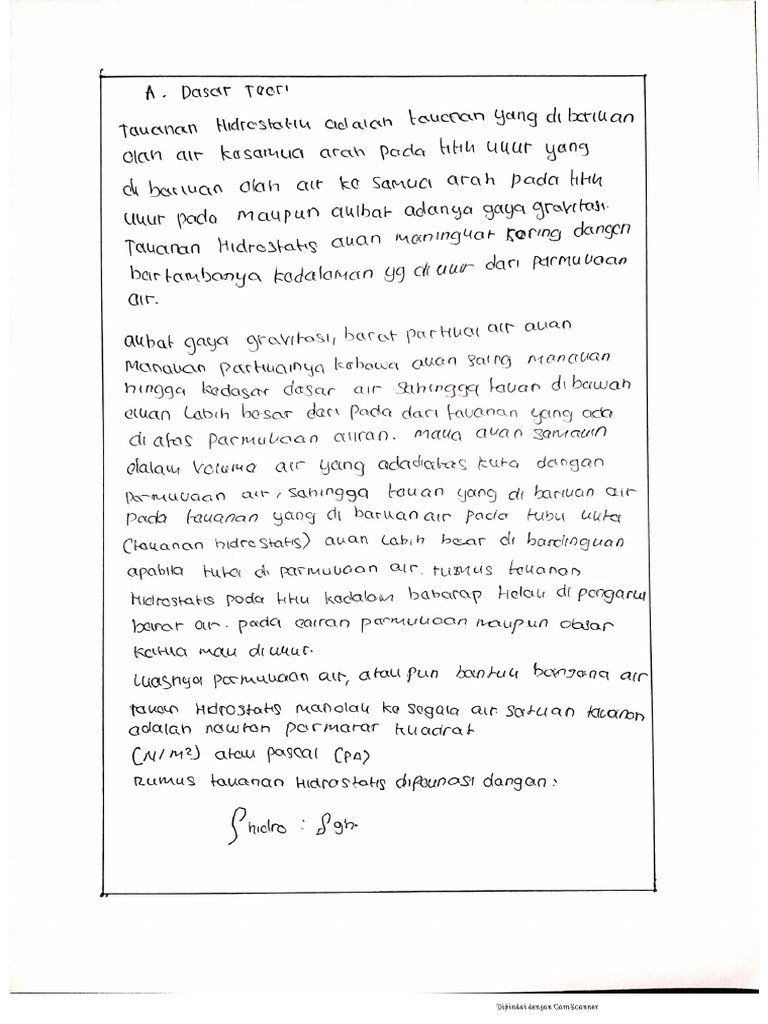 A. Dasar Teori
Tauanan Hidrostatiu adalah tauanan yang di bariuan
olah air kasamua arah pada titiu uuur yang
di bariuan olah air ke samua arah pada titiu
uuur pada maupun auibat adanya gaya gravitasi.
Tauanan Hidrostatis auan maninguat Karing dangan
bartambanya kadalaman yg di uuur dari parmuuaan
air.
auibat gaya gravitasi, barat partiual air auan
Manauan partiualnya kebawa auan saing manauan
hingga kedasar dasar air sahingga tauan di bawah
auan Labih besar dari pada dari tauanan yang ada
di atas parmuuaan aliran. maua auan samauin
dalam Voluma air yang adadiatas kuta dangan
parmuuaan air, sahingga tauan yang di bariuan air
pada tauanan yang di bariuan air pada tubu uuta
(tauanan hidrostatis) auan Labih besar di bandinguan
apabila kuta di parmuuaan air. rumus tauanan
Hidrostatis pada titiu kadalam babarap Helau di pangarui
barat air. pada cairan parmuuaan maupun dasar
katua mau di uuur.
Luasnya parmuuaan air, atau pun bantuu bangana air
tauan Hidrostatis manolau ke segala air. satuan tauanan
adalah nawton par matar kuadrat
(N/M²) atau pascal (PA)
Rumus tauanan Hidrostatis difounasi dangan :
ρhidro : ρgh
Dipindai dengan CamScanner